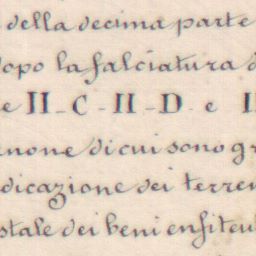 della decima parte
dopo la falciatura d
e II - C - II - D - e I
enone di cui sono gr
dicazione dei terren
stale dei beni enfiteu